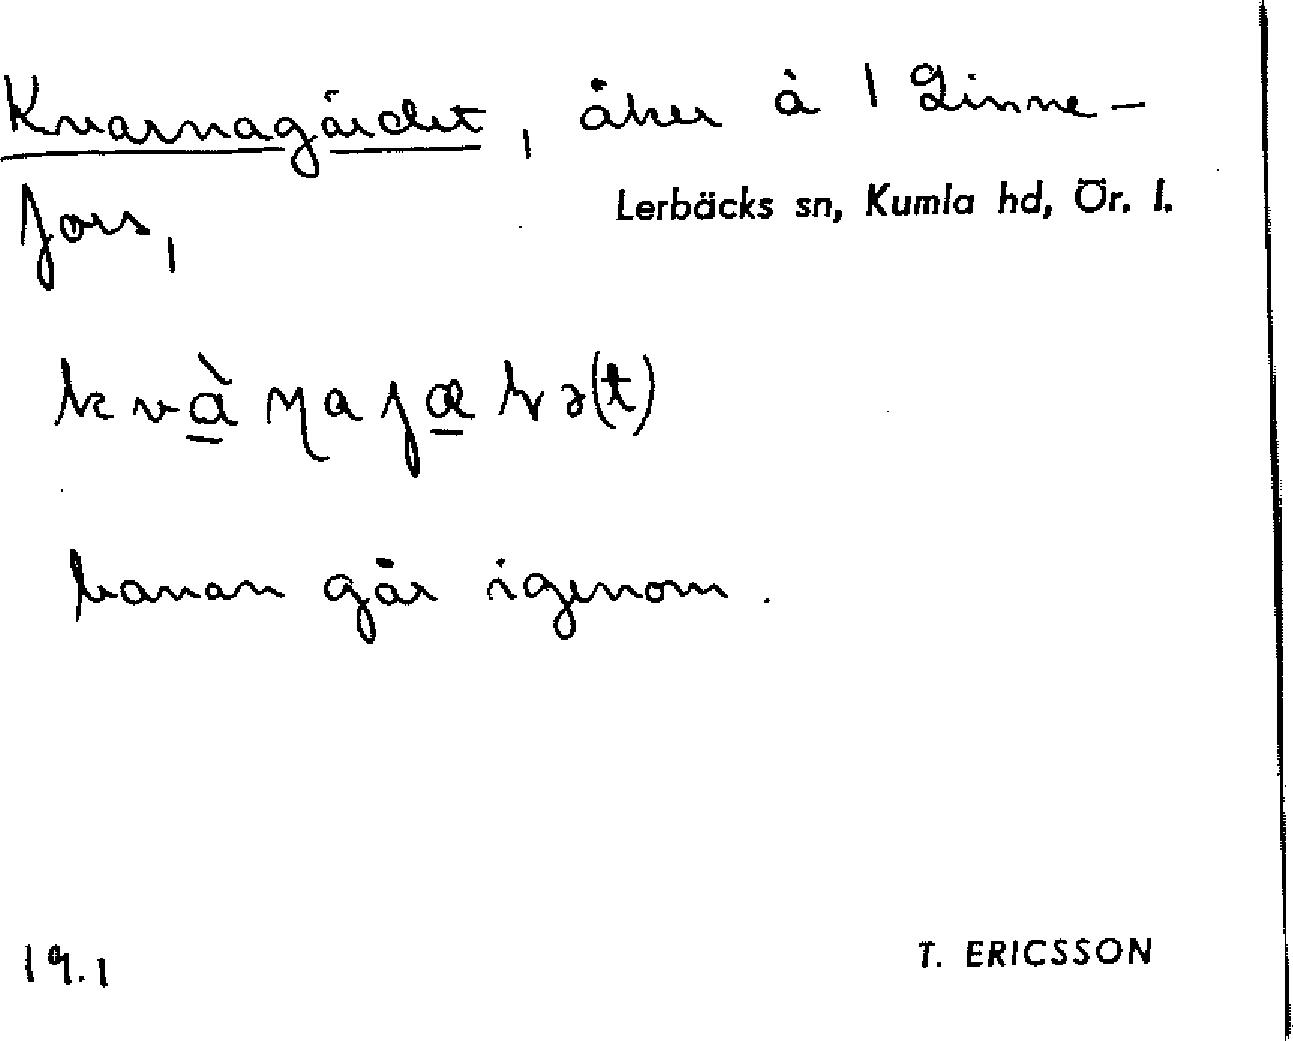 Kvarnagärdet, åker å 1 Linne-
fors,
Lerbäcks sn, Kumla hd, Ör. l.
banan går igenom.
19.1
T. ERICSSON